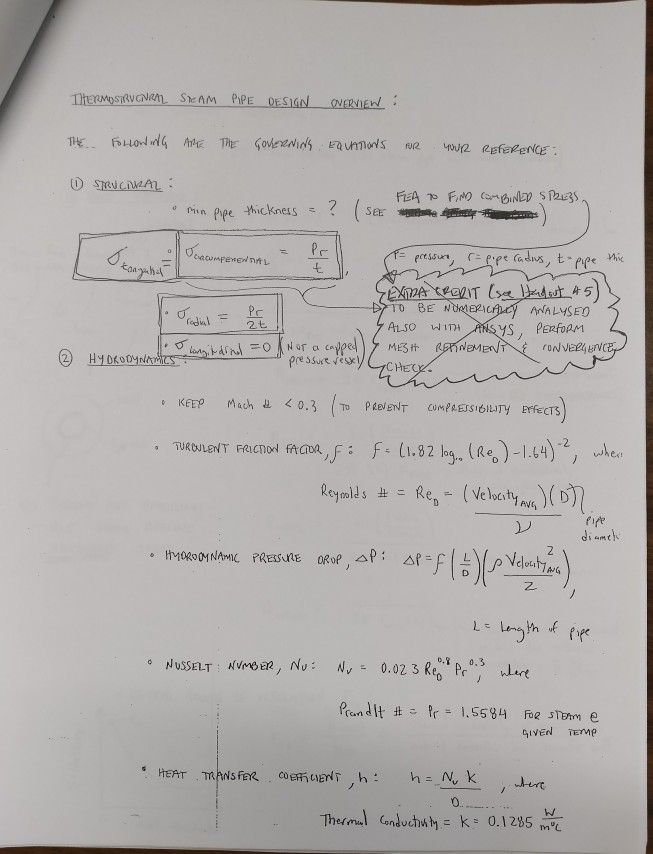 THERMOSTRUCTURAL STEAM PIPE DESIGN OVERVIEW :
THE FOLLOWING ARE THE GOVERNING EQUATIONS FOR YOUR REFERENCE :
① STRUCTURAL :
• min pipe thickness = ? ( SEE FEA TO FIND COMBINED STRESS )
σtangential = σCIRCUMFERENTIAL = Pr/t ,
P = pressure, r = pipe radius, t = pipe thic
• σradial = Pr/2t
• σlongitudinal = 0 (Not a capped pressure vessel)
EXTRA CREDIT (see Handout #5)
TO BE NUMERICALLY ANALYSED
ALSO WITH ANSYS, PERFORM
MESH REFINEMENT & CONVERGENCE
CHECK.
② HYDRODYNAMICS :
• KEEP Mach # < 0.3 (TO PREVENT COMPRESSIBILITY EFFECTS)
• TURBULENT FRICTION FACTOR, f : f = (1.82 log10 (ReD) - 1.64)^-2 , wher
Reynolds # = ReD = (Velocity AVG)(D)/ν
pipe
diamet
• HYDRODYNAMIC PRESSURE DROP, ΔP : ΔP = f (L/D)(ρ Velocity²AVG/2) ,
L = Length of pipe
• NUSSELT NUMBER, Nu : Nu = 0.023 ReD^0.8 Pr^0.3 , where
Prandlt # = Pr = 1.5584 FOR STEAM @
GIVEN TEMP
• HEAT TRANSFER COEFFICIENT, h : h = Nu K/D , where
Thermal Conductivity = K = 0.1285 W/m°C